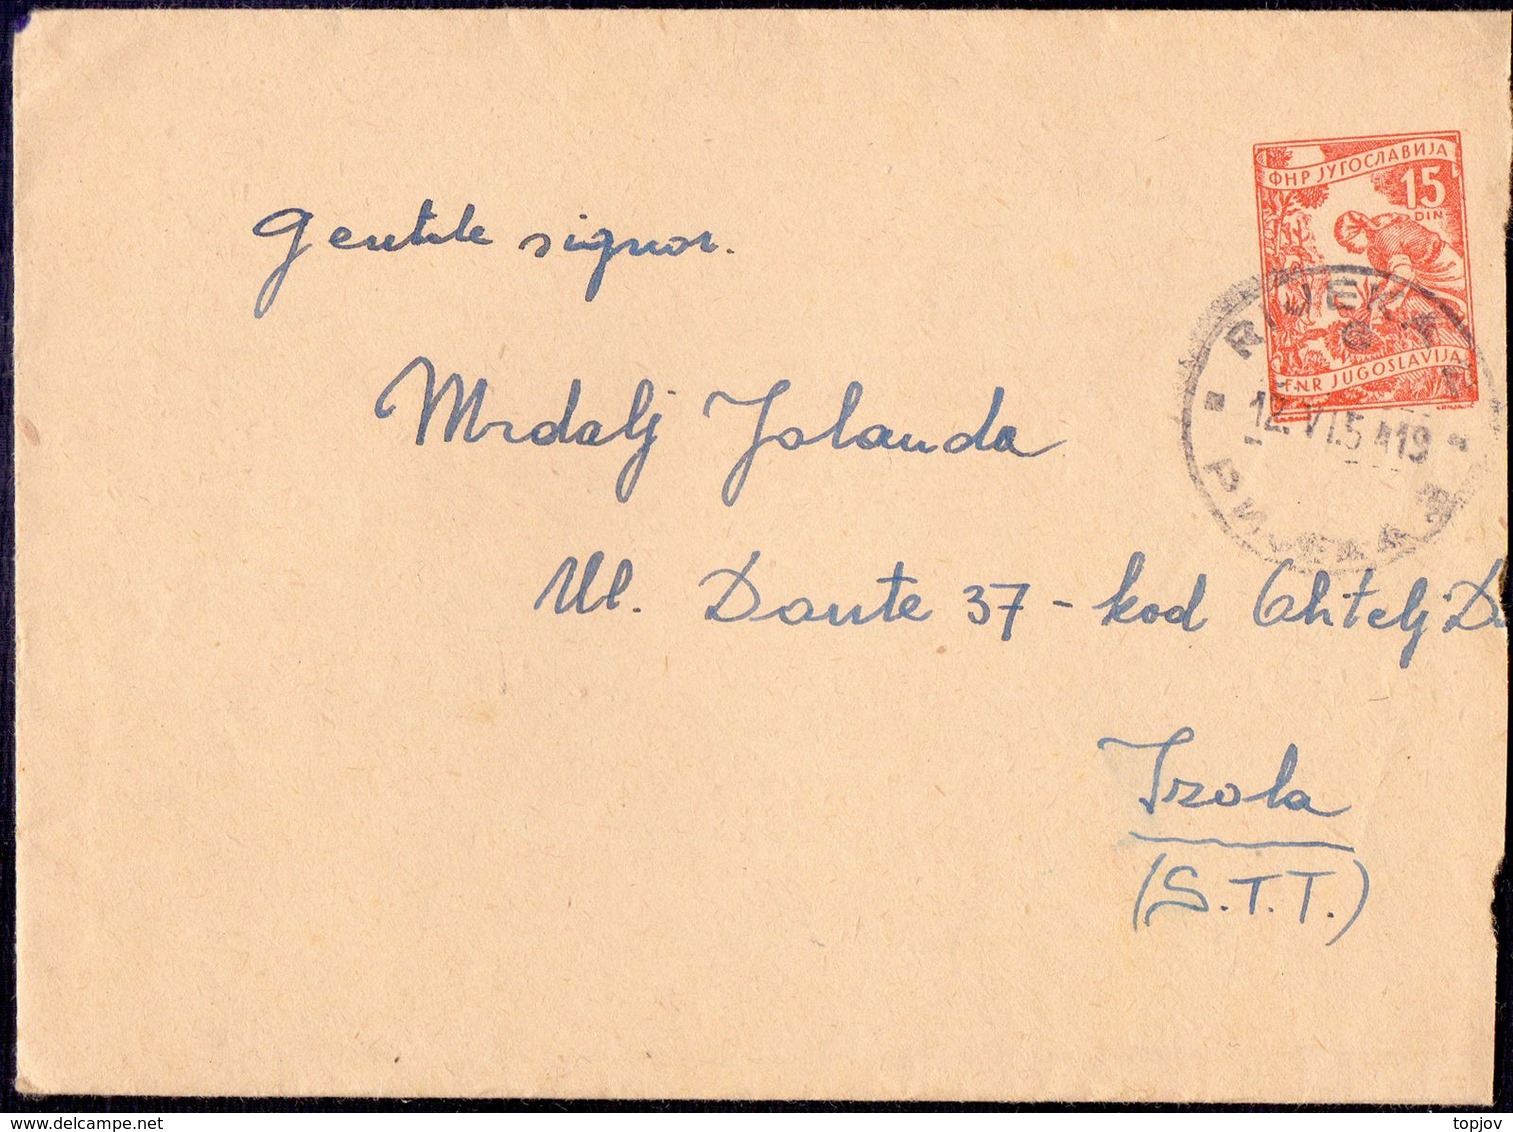 ФНР ЈУГОСЛАВИЈА
15
DIN
FNR JUGOSLAVIJA
RIJEKA
12.VI.54 19
РИЈЕКА
Gentile signor.
Mrdalj Jolanda
Ul. Dante 37 - kod Chtelj
Izola
(S.T.T.)
topjov